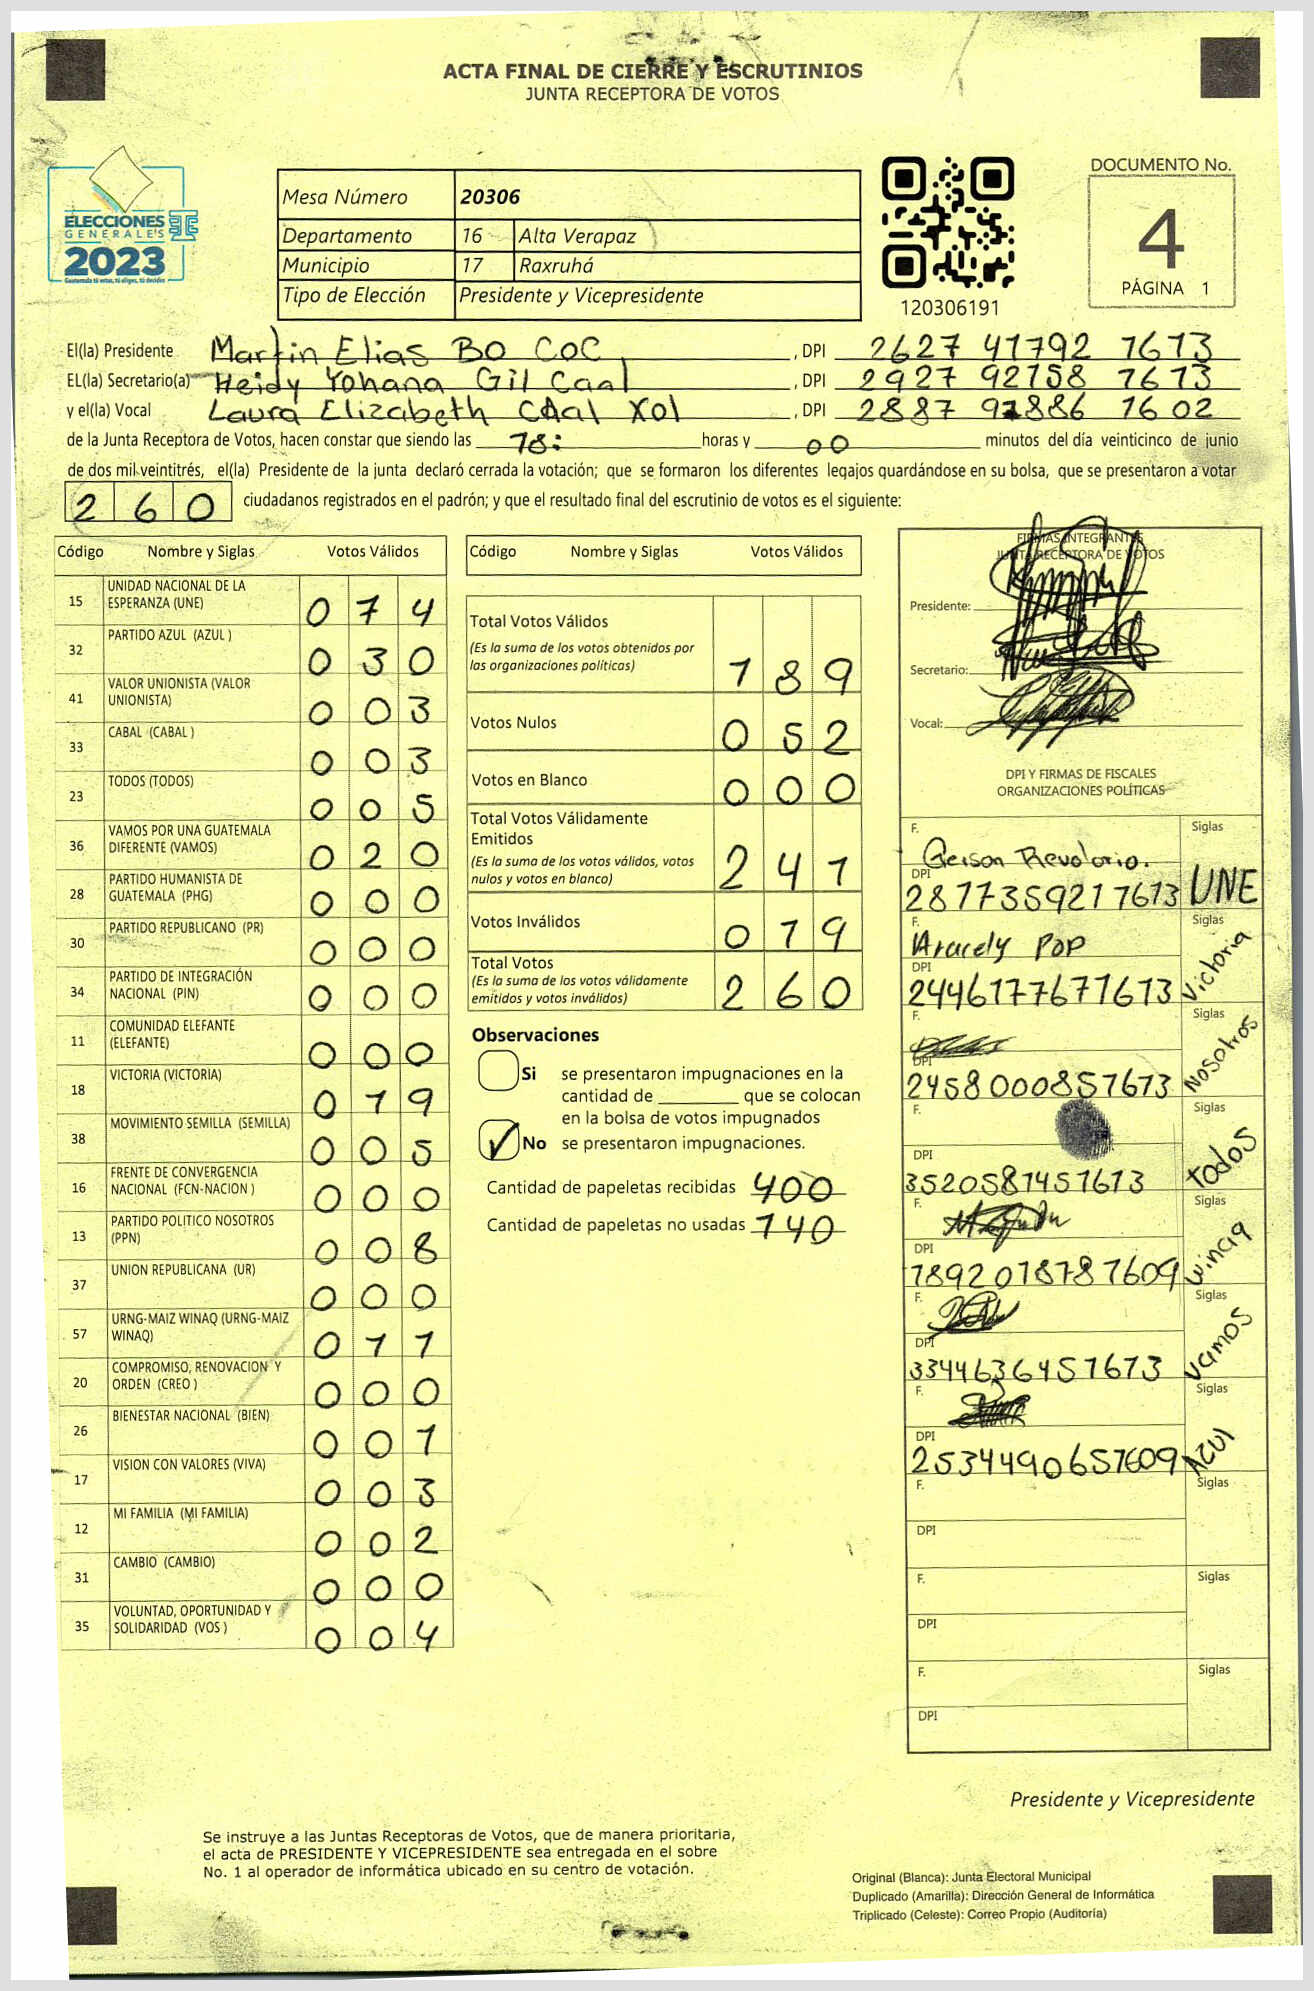 ACTA FINAL DE CIERRE Y ESCRUTINIOS
JUNTA RECEPTORA DE VOTOS
ELECCIONES
GENERALES
2023
Guatemala tú votas, tú eliges, tú decides
Mesa Número 20306
Departamento 16 Alta Verapaz
Municipio 17 Raxruhá
Tipo de Elección Presidente y Vicepresidente
120306191
DOCUMENTO No.
4
PÁGINA 1
El(la) Presidente Martin Elias BO COC , DPI 2627 41792 1613
EL(la) Secretario(a) Heidy Yohana Gil Caal , DPI 2927 92158 1613
y el(la) Vocal Laura Elizabeth CAal Xol , DPI 2887 91886 1602
de la Junta Receptora de Votos, hacen constar que siendo las 18: horas y 00 minutos del día veinticinco de junio
de dos mil veintitrés, el(la) Presidente de la junta declaró cerrada la votación; que se formaron los diferentes legajos quardándose en su bolsa, que se presentaron a votar
260 ciudadanos registrados en el padrón; y que el resultado final del escrutinio de votos es el siguiente:
Código Nombre y Siglas Votos Válidos
15 UNIDAD NACIONAL DE LA ESPERANZA (UNE) 074
32 PARTIDO AZUL (AZUL ) 030
41 VALOR UNIONISTA (VALOR UNIONISTA) 003
33 CABAL (CABAL ) 003
23 TODOS (TODOS) 005
36 VAMOS POR UNA GUATEMALA DIFERENTE (VAMOS) 020
28 PARTIDO HUMANISTA DE GUATEMALA (PHG) 000
30 PARTIDO REPUBLICANO (PR) 000
34 PARTIDO DE INTEGRACIÓN NACIONAL (PIN) 000
11 COMUNIDAD ELEFANTE (ELEFANTE) 000
18 VICTORIA (VICTORIA) 019
38 MOVIMIENTO SEMILLA (SEMILLA) 005
16 FRENTE DE CONVERGENCIA NACIONAL (FCN-NACION ) 000
13 PARTIDO POLITICO NOSOTROS (PPN) 008
37 UNION REPUBLICANA (UR) 000
57 URNG-MAIZ WINAQ (URNG-MAIZ WINAQ) 011
20 COMPROMISO, RENOVACION Y ORDEN (CREO ) 000
26 BIENESTAR NACIONAL (BIEN) 001
17 VISION CON VALORES (VIVA) 003
12 MI FAMILIA (MI FAMILIA) 002
31 CAMBIO (CAMBIO) 000
35 VOLUNTAD, OPORTUNIDAD Y SOLIDARIDAD (VOS ) 004
Código Nombre y Siglas Votos Válidos
Total Votos Válidos
(Es la suma de los votos obtenidos por
las organizaciones políticas) 189
Votos Nulos 052
Votos en Blanco 000
Total Votos Válidamente
Emitidos
(Es la suma de los votos válidos, votos
nulos y votos en blanco) 241
Votos Inválidos 019
Total Votos
(Es la suma de los votos válidamente
emitidos y votos inválidos) 260
Observaciones
Si se presentaron impugnaciones en la
cantidad de ________ que se colocan
en la bolsa de votos impugnados
No se presentaron impugnaciones.
Cantidad de papeletas recibidas 400
Cantidad de papeletas no usadas 140
FIRMAS INTEGRANTES
JUNTA RECEPTORA DE VOTOS
Presidente:
Secretario:
Vocal:
DPI Y FIRMAS DE FISCALES
ORGANIZACIONES POLÍTICAS
F. Gerson Revolorio. Siglas
DPI 2877359211613 UNE
F. Aracely Pop Siglas
DPI 2446177671613 Victoria
F. Siglas
DPI 2458000851613 Nosotros
F. Siglas
DPI 3520581451613 todos
F. Siglas
DPI 1892018781609 winaq
F. Siglas
DPI 3344636451613 vamos
F. Siglas
DPI 2534490651609 AZUL
F. Siglas
DPI
F. Siglas
DPI
F. Siglas
DPI
Presidente y Vicepresidente
Se instruye a las Juntas Receptoras de Votos, que de manera prioritaria,
el acta de PRESIDENTE Y VICEPRESIDENTE sea entregada en el sobre
No. 1 al operador de informática ubicado en su centro de votación.
Original (Blanca): Junta Electoral Municipal
Duplicado (Amarilla): Dirección General de Informática
Triplicado (Celeste): Correo Propio (Auditoría)